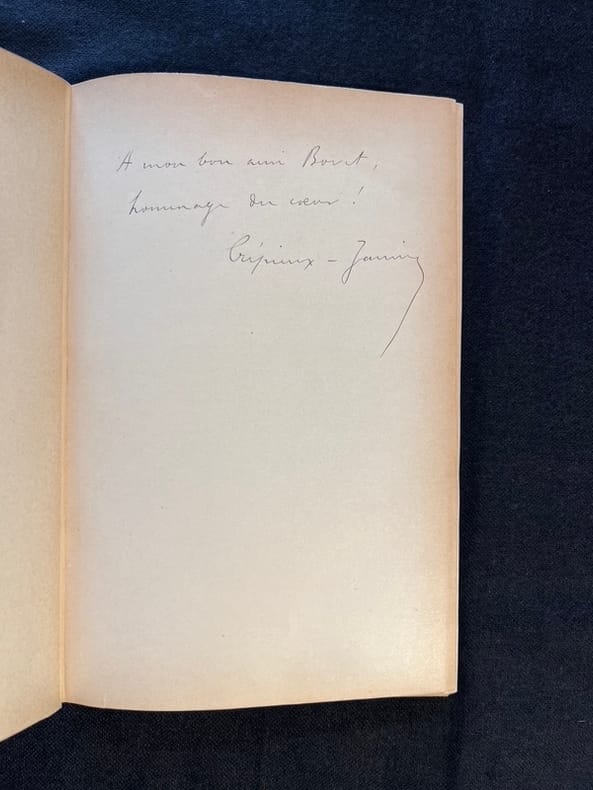 A mon bon ami Bovet,
hommage du cœur !
Crépieux - Jamin